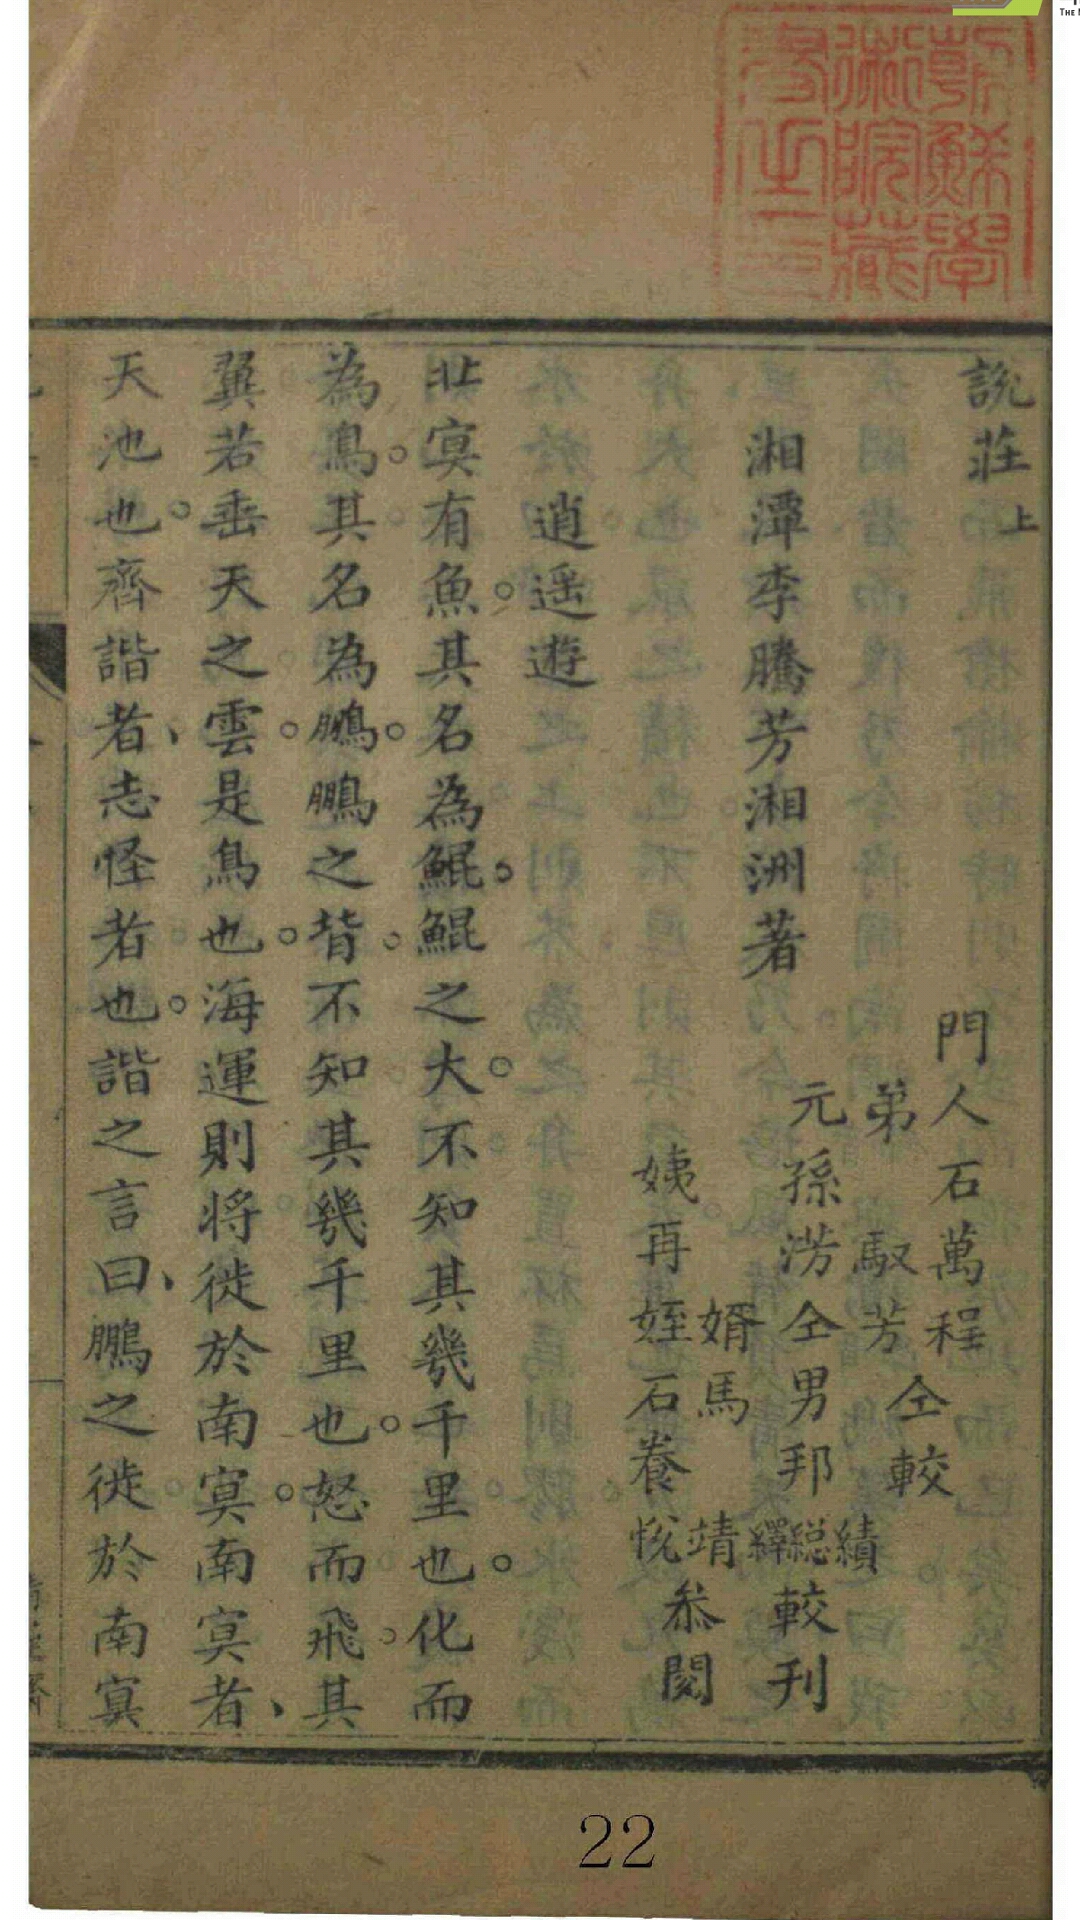 說莊上
湘潭李騰芳湘洲著
門人石萬程
弟馭芳
仝較
元孫涝仝男邦績総繹較刊
婿馬靖
姨再姪石養恱
叅閱
逍遥遊
北㝠有魚。其名為鯤。鯤之大。不知其幾千里也。化而
為鳥。其名為鵬。鵬之背。不知其幾千里也。怒而飛。其
翼若垂天之雲。是鳥也。海運則將徙於南㝠。南㝠者、
天池也。齊諧者、志怪者也。諧之言曰、鵬之徙於南㝠
22